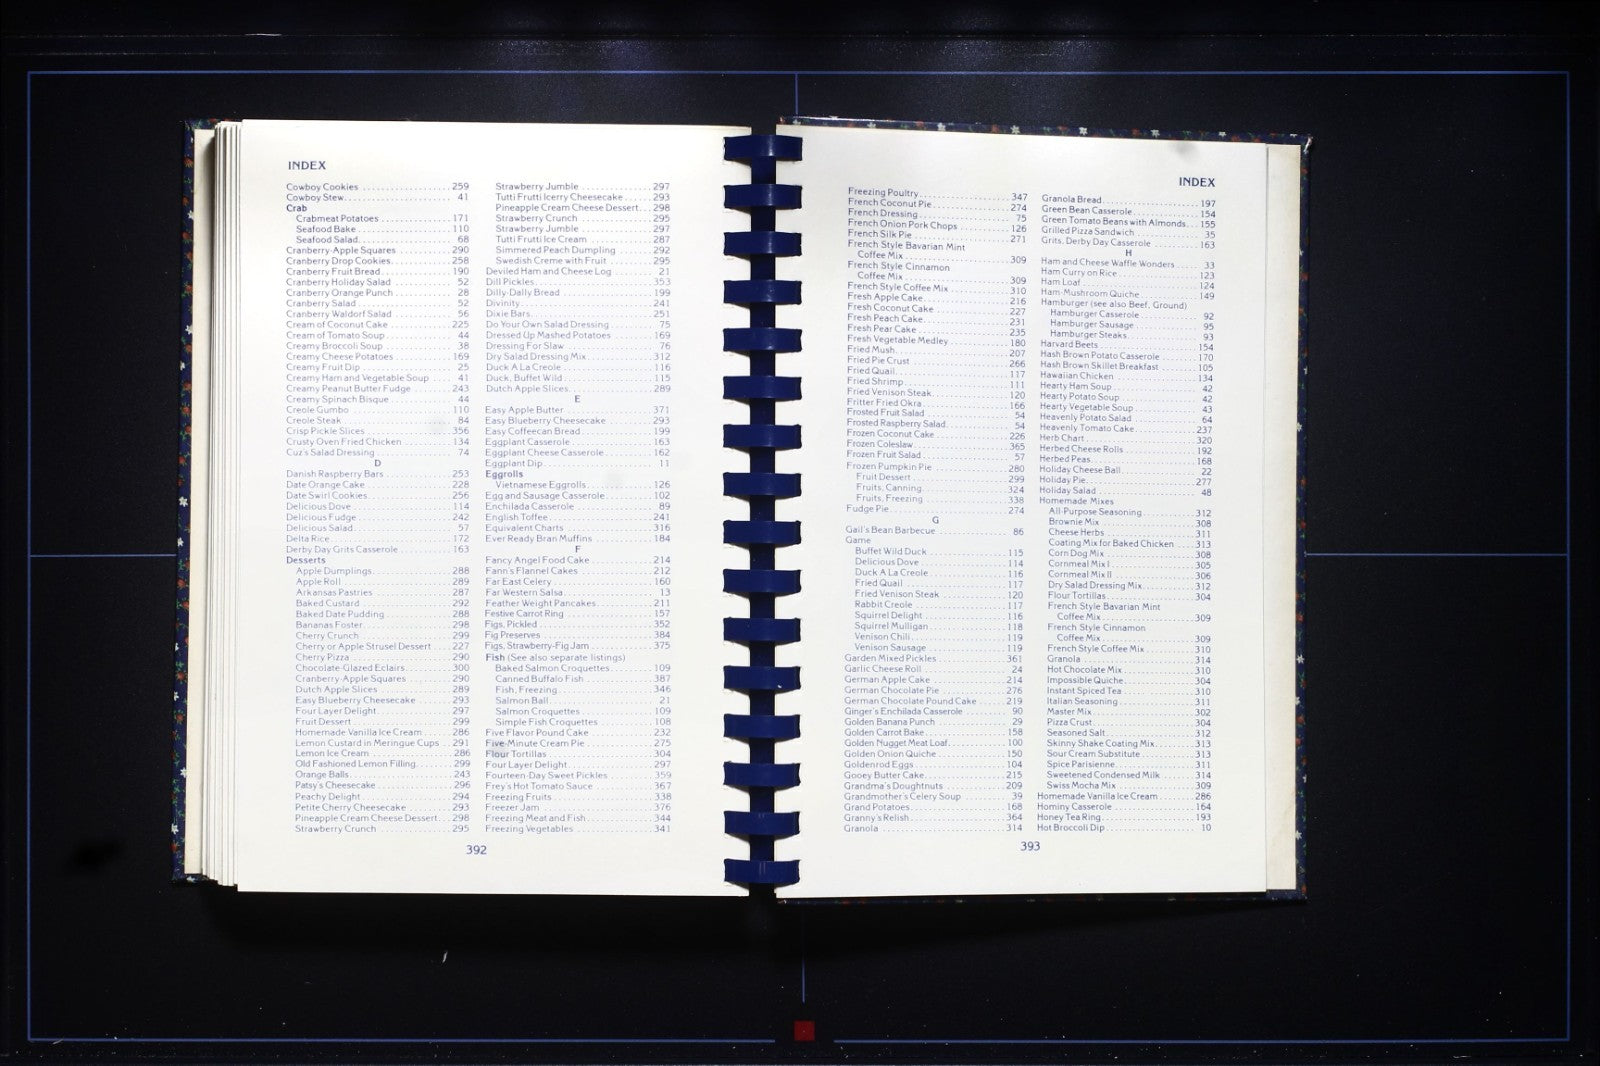 INDEX
Cowboy Cookies 259
Cowboy Stew 41
Crab
Crabmeat Potatoes 171
Seafood Bake 110
Seafood Salad 68
Cranberry-Apple Squares 290
Cranberry Drop Cookies 258
Cranberry Fruit Bread 190
Cranberry Holiday Salad 52
Cranberry Orange Punch 28
Cranberry Salad 52
Cranberry Waldorf Salad 56
Cream of Coconut Cake 225
Cream of Tomato Soup 44
Creamy Broccoli Soup 38
Creamy Cheese Potatoes 169
Creamy Fruit Dip 25
Creamy Ham and Vegetable Soup 41
Creamy Peanut Butter Fudge 243
Creamy Spinach Bisque 44
Creole Gumbo 110
Creole Steak 84
Crisp Pickle Slices 356
Crusty Oven Fried Chicken 134
Cuz's Salad Dressing 74
D
Danish Raspberry Bars 253
Date Orange Cake 228
Date Swirl Cookies 256
Delicious Dove 114
Delicious Fudge 242
Delicious Salad 57
Delta Rice 172
Derby Day Grits Casserole 163
Desserts
Apple Dumplings 288
Apple Roll 289
Arkansas Pastries 287
Baked Custard 292
Baked Date Pudding 288
Bananas Foster 298
Cherry Crunch 299
Cherry or Apple Strusel Dessert 227
Cherry Pizza 290
Chocolate-Glazed Eclairs 300
Cranberry-Apple Squares 290
Dutch Apple Slices 289
Easy Blueberry Cheesecake 293
Four Layer Delight 297
Fruit Dessert 299
Homemade Vanilla Ice Cream 286
Lemon Custard in Meringue Cups 291
Lemon Ice Cream 286
Old Fashioned Lemon Filling 299
Orange Balls 243
Patsy's Cheesecake 296
Peachy Delight 294
Petite Cherry Cheesecake 293
Pineapple Cream Cheese Dessert 298
Strawberry Crunch 295
Strawberry Jumble 297
Tutti Frutti Icerry Cheesecake 293
Pineapple Cream Cheese Dessert 298
Strawberry Crunch 295
Strawberry Jumble 297
Tutti Frutti Ice Cream 287
Simmered Peach Dumpling 292
Swedish Creme with Fruit 295
Deviled Ham and Cheese Log 21
Dill Pickles 353
Dilly-Dally Bread 199
Divinity 241
Dixie Bars 251
Do Your Own Salad Dressing 75
Dressed Up Mashed Potatoes 169
Dressing For Slaw 76
Dry Salad Dressing Mix 312
Duck A La Creole 116
Duck, Buffet Wild 115
Dutch Apple Slices 289
E
Easy Apple Butter 371
Easy Blueberry Cheesecake 293
Easy Coffeecan Bread 199
Eggplant Casserole 163
Eggplant Cheese Casserole 162
Eggplant Dip 11
Eggrolls
Vietnamese Eggrolls 126
Egg and Sausage Casserole 102
Enchilada Casserole 89
English Toffee 241
Equivalent Charts 316
Ever Ready Bran Muffins 184
F
Fancy Angel Food Cake 214
Fann's Flannel Cakes 212
Far East Celery 160
Far Western Salsa 13
Feather Weight Pancakes 211
Festive Carrot Ring 157
Figs, Pickled 352
Fig Preserves 384
Figs, Strawberry-Fig Jam 375
Fish (See also separate listings)
Baked Salmon Croquettes 109
Canned Buffalo Fish 387
Fish, Freezing 346
Salmon Ball 21
Salmon Croquettes 109
Simple Fish Croquettes 108
Five Flavor Pound Cake 232
Five-Minute Cream Pie 275
Flour Tortillas 304
Four Layer Delight 297
Fourteen-Day Sweet Pickles 359
Frey's Hot Tomato Sauce 367
Freezing Fruits 338
Freezer Jam 376
Freezing Meat and Fish 344
Freezing Vegetables 341
392
INDEX
Freezing Poultry 347
French Coconut Pie 274
French Dressing 75
French Onion Pork Chops 126
French Silk Pie 271
French Style Bavarian Mint
Coffee Mix 309
French Style Cinnamon
Coffee Mix 309
French Style Coffee Mix 310
Fresh Apple Cake 216
Fresh Coconut Cake 227
Fresh Peach Cake 231
Fresh Pear Cake 235
Fresh Vegetable Medley 180
Fried Mush 207
Fried Pie Crust 266
Fried Quail 117
Fried Shrimp 111
Fried Venison Steak 120
Fritter Fried Okra 166
Frosted Fruit Salad 54
Frosted Raspberry Salad 54
Frozen Coconut Cake 226
Frozen Coleslaw 365
Frozen Fruit Salad 57
Frozen Pumpkin Pie 280
Fruit Dessert 299
Fruits, Canning 324
Fruits, Freezing 338
Fudge Pie 274
G
Gail's Bean Barbecue 86
Game
Buffet Wild Duck 115
Delicious Dove 114
Duck A La Creole 116
Fried Quail 117
Fried Venison Steak 120
Rabbit Creole 117
Squirrel Delight 116
Squirrel Mulligan 118
Venison Chili 119
Venison Sausage 119
Garden Mixed Pickles 361
Garlic Cheese Roll 24
German Apple Cake 214
German Chocolate Pie 276
German Chocolate Pound Cake 219
Ginger's Enchilada Casserole 90
Golden Banana Punch 29
Golden Carrot Bake 158
Golden Nugget Meat Loaf 100
Golden Onion Quiche 150
Goldenrod Eggs 104
Gooey Butter Cake 215
Grandma's Doughnuts 209
Grandmother's Celery Soup 39
Grand Potatoes 168
Granny's Relish 364
Granola 314
Granola Bread 197
Green Bean Casserole 154
Green Tomato Beans with Almonds 155
Grilled Pizza Sandwich 35
Grits, Derby Day Casserole 163
H
Ham and Cheese Waffle Wonders 33
Ham Curry on Rice 123
Ham Loaf 124
Ham-Mushroom Quiche 149
Hamburger (see also Beef, Ground)
Hamburger Casserole 92
Hamburger Sausage 95
Hamburger Steaks 93
Harvard Beets 154
Hash Brown Potato Casserole 170
Hash Brown Skillet Breakfast 105
Hawaiian Chicken 134
Hearty Ham Soup 42
Hearty Potato Soup 42
Hearty Vegetable Soup 43
Heavenly Potato Salad 64
Heavenly Tomato Cake 237
Herb Chart 320
Herbed Cheese Rolls 192
Herbed Peas 168
Holiday Cheese Ball 22
Holiday Pie 277
Holiday Salad 48
Homemade Mixes
All-Purpose Seasoning 312
Brownie Mix 308
Cheese Herbs 311
Coating Mix for Baked Chicken 313
Corn Dog Mix 308
Cornmeal Mix I 305
Cornmeal Mix II 306
Dry Salad Dressing Mix 312
Flour Tortillas 304
French Style Bavarian Mint
Coffee Mix 309
French Style Cinnamon
Coffee Mix 309
French Style Coffee Mix 310
Granola 314
Hot Chocolate Mix 310
Impossible Quiche 304
Instant Spiced Tea 310
Italian Seasoning 311
Master Mix 302
Pizza Crust 304
Seasoned Salt 312
Skinny Shake Coating Mix 313
Sour Cream Substitute 313
Spice Parisienne 311
Sweetened Condensed Milk 314
Swiss Mocha Mix 309
Homemade Vanilla Ice Cream 286
Hominy Casserole 164
Honey Tea Ring 193
Hot Broccoli Dip 10
393